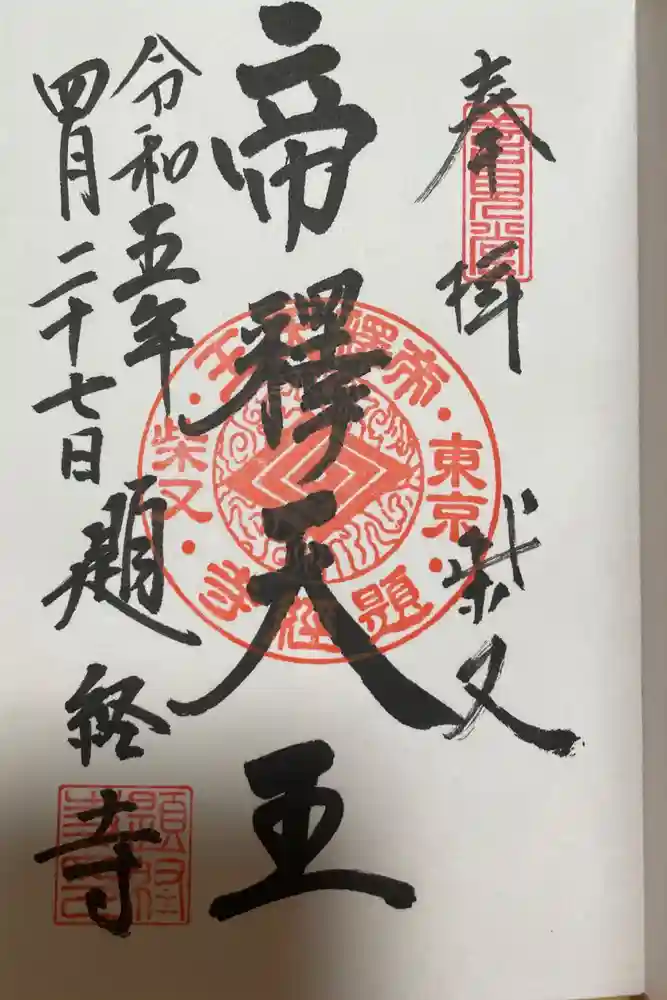 奉拝
柴又
帝釋天王
令和五年
四月二十七日
題経寺
東京・柴又・
帝釋天王
題経寺